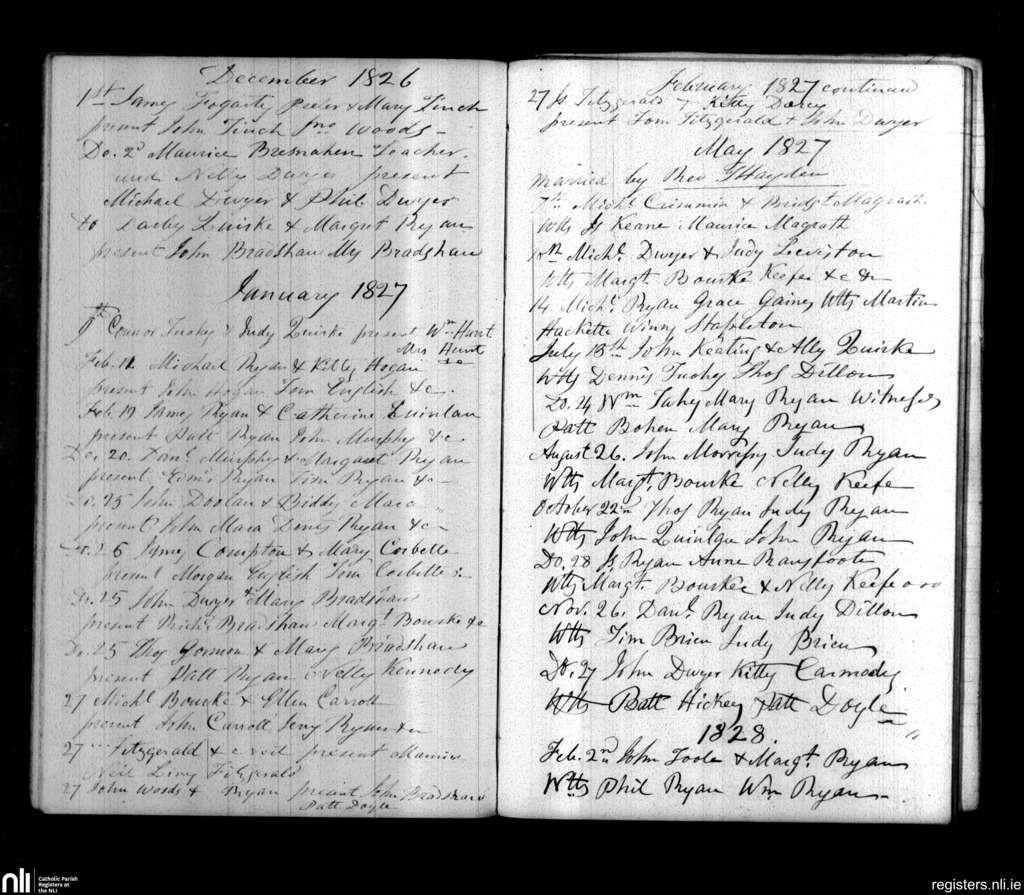 December 1826
1st James Fogarty Peeler & Mary Finch
present John Finch Jno Woods
Do. 2d Maurice Bresnahen Teacher
and Nelly Dwyer present
Michael Dwyer & Phil Dwyer
to Quirke & Margret Ryan
present John Bradshaw Bradshaw
January 1827
9th Connor Tuohy & Judy Quirke present Wm Hunt
Mrs Hunt
Feb. 11 Michael Ryan & Kitty Hogan
present John Hogan Tom English &c
Feb. 19 James Ryan & Catherine Quinlan
present Patt Ryan John Murphy &c
Do. 20. Danl Murphy & Margaret Ryan
present Edmd Ryan Tim Ryan &c
Do. 25 John Doolan & Biddy Mara
present John Mara Denis Ryan &c
Do. 26 James Compton & Mary Corbette
present Morgan English Tim Corbette
Do. 25 John Dwyer & Mary Bradshaw
present Richd Bradshaw Margt Bourke &c
Do. 25 Thos Gorman & Mary Bradshaw
present Patt Ryan Nelly Kennedy
27 Michl Bourke & Ellen Carroll
present John Carroll Jerry Ryan &c
27 Fitzgerald & Neil present Maurice
Neil Fitzgerald
27 John Woods & Ryan present John Bradshaw
Patt Doyle
February 1827 continued
27 Js Fitzgerald & Kitty Darcy
present Tom Fitzgerald & John Dwyer
May 1827
Married by Revd T Hayden
7th Michl Crimmin & Bridgt Magrath
Wtts Js Keane Maurice Magrath
Michl Dwyer & Judy Leviston
Wtts Margt Bourke Keefe &c &c
14 Michl Ryan Grace Gainey Wtts Martin
Hackette Winny Stapleton
July 13th John Keating & Ally Quirke
Wtts Dennis Tuohy Thos Dillon
Do. 24 Wm Fahy Mary Ryan Witnesses
Patt Bohen Mary Ryan
August 26. John Morrissy Judy Ryan
Wtts Margt. Bourke Nelly Keefe
October 22nd Thos Ryan Judy Ryan
Wtts John Quinlan John Ryan
Do. 28 Js. Ryan Anne Ransfoote
Wtts Margt. Bourke & Nelly Keefe
Nov. 26. Danl Ryan Judy Dillon
Wtts Tim Brien Judy Brien
Do. 27 John Dwyer Kitty Carmody
Wtts Patt Hickey Patt Doyle
1828.
Feb. 2nd John Toole & Margt Ryan
Wtts Phil Ryan Wm Ryan
nli
Catholic Parish
Registers at
the NLI
registers.nli.ie